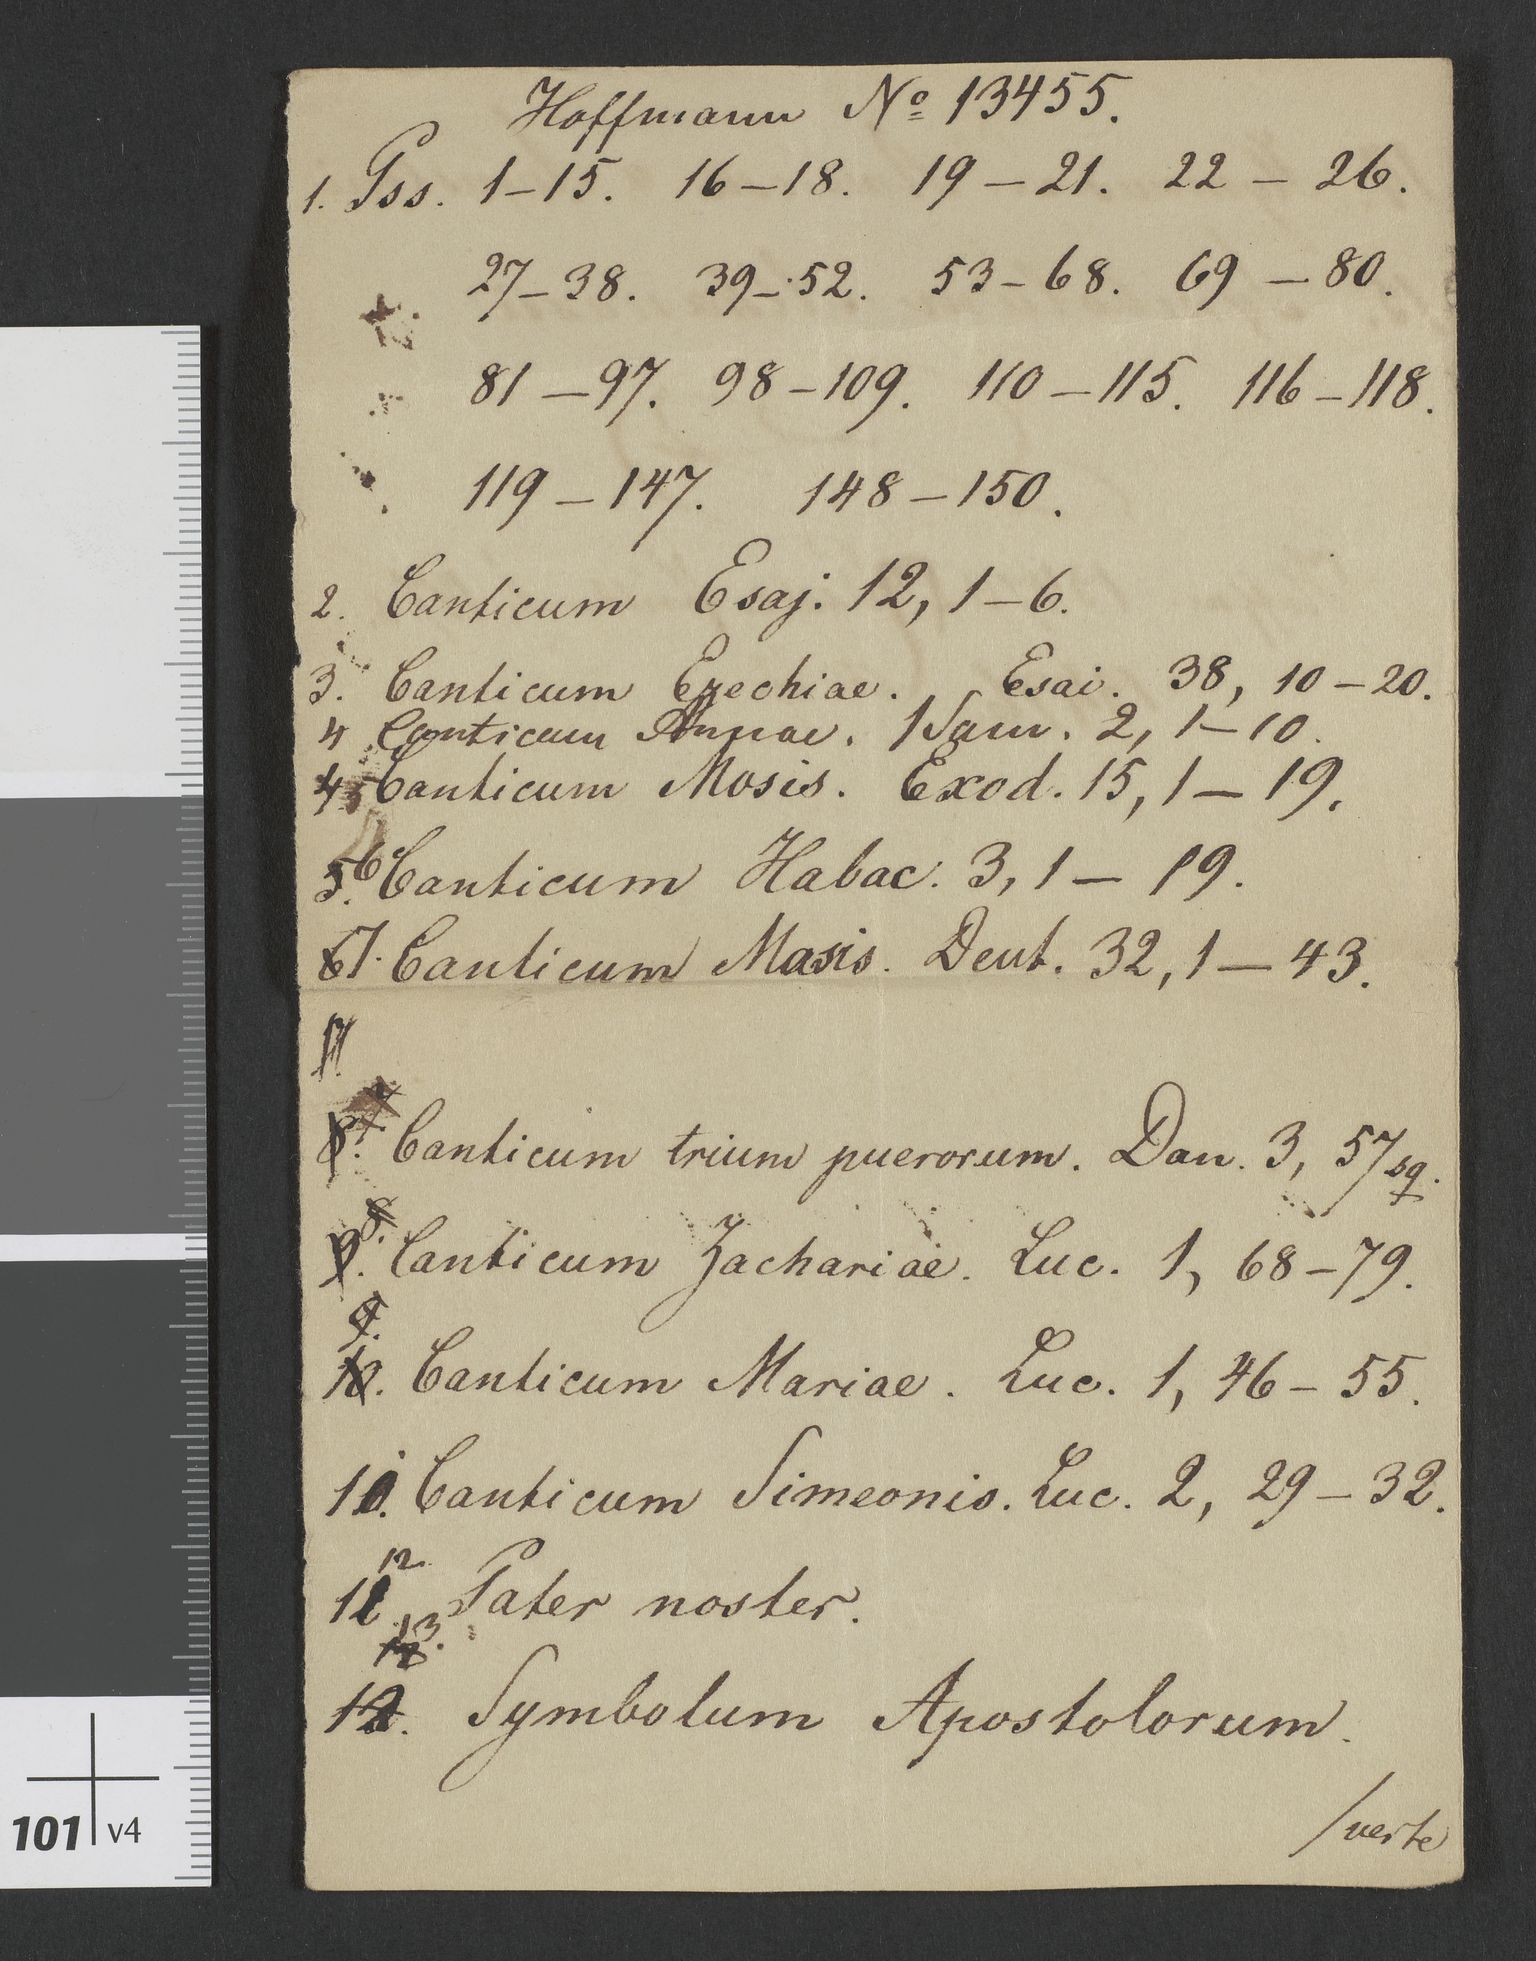 Hoffmann No 13455.
1. Pss. 1–15. 16–18. 19–21. 22–26.
27–38. 39–52. 53–68. 69–80.
81–97. 98–109. 110–115. 116–118.
119–147. 148–150.
2. Canticum Esaj. 12, 1–6.
3. Canticum Ezechiae. Esai. 38, 10–20.
4 Canticum Annae. 1 Sam. 2, 1–10.
4 5 Canticum Mosis. Exod. 15, 1–19.
5. 6 Canticum Habac. 3, 1–19.
6 7. Canticum Mosis. Deut. 32, 1–43.
8. 7. Canticum trium puerorum. Dan. 3, 57 sq.
9. 8. Canticum Zachariae. Luc. 1, 68–79.
9.
10. Canticum Mariae. Luc. 1, 46–55.
10. Canticum Simeonis. Luc. 2, 29–32.
12
11. Pater noster.
13.
12. Symbolum Apostolorum.
/verte
101 v4